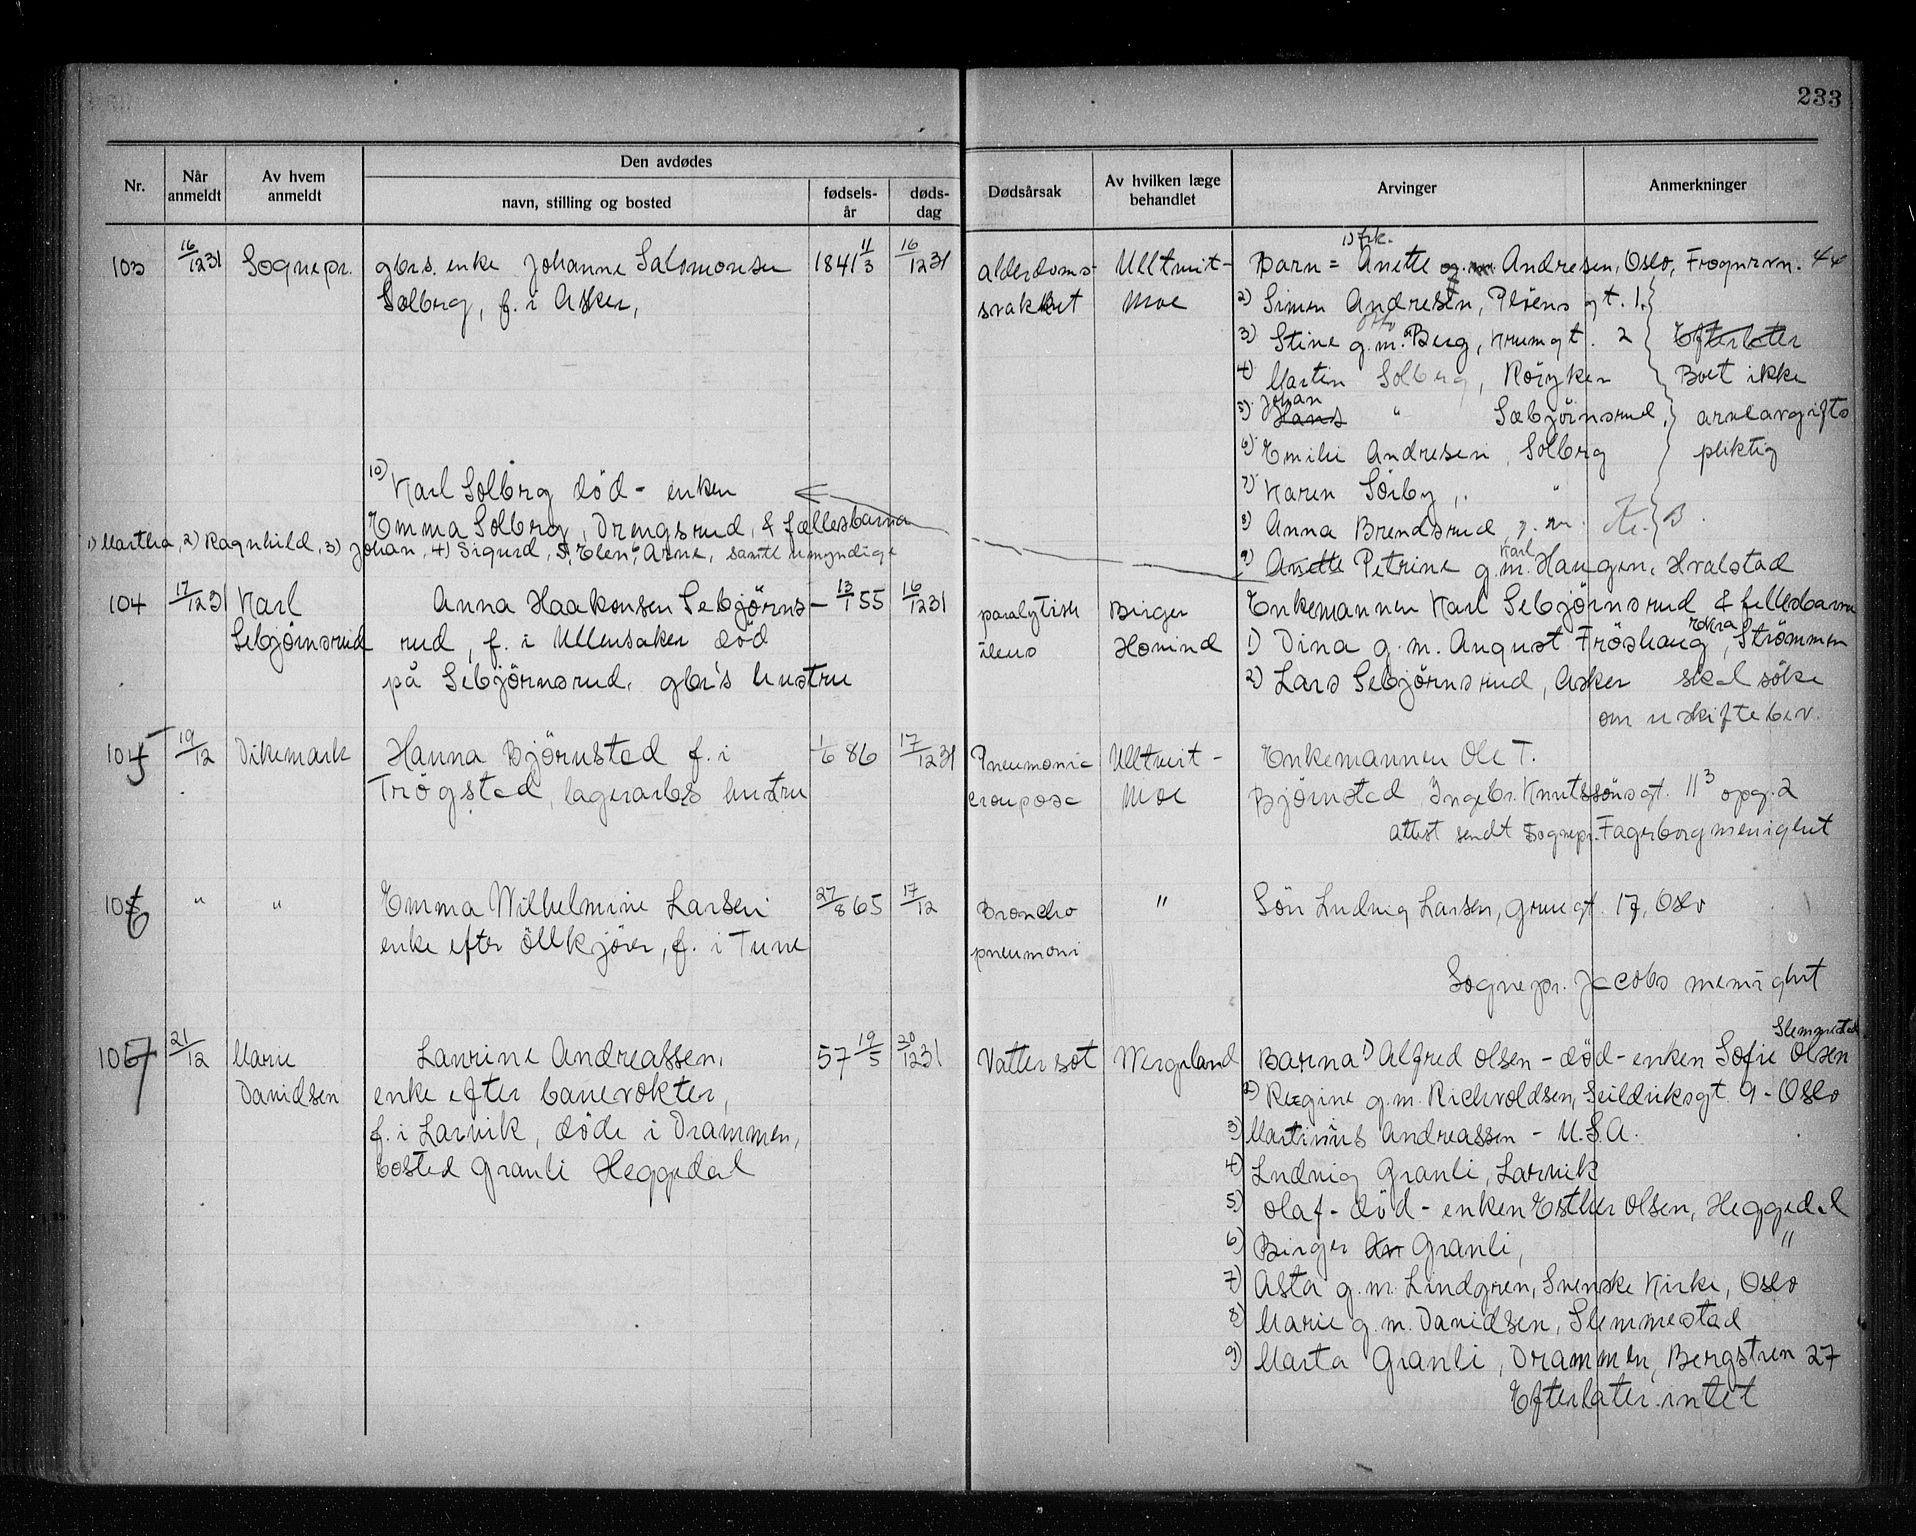 233
Nr. Når anmeldt Av hvem anmeldt Den avdødes Dødsårsak Av hvilken læge behandlet Arvinger Anmerkninger
navn, stilling og bosted fødsels-år døds-dag
103 16/12 31 Sognepr. gbrs. enke Johanne Salomonsen 1841 11/3 16/12 31 alderdoms- Ulltveit- Barn = 1) frk. Anette Andresen, Oslo, Frognervn. 44
Solberg, f. i Asker, svakhet Moe 2) Simen Andresen, Pløens gt. 1.
3) Stine g.m. Otto Berg, Krumgt. 2 Efterlater
4) Martin Solberg, Röyken Boet ikke
5) Johan Hans " Sæbjörnsrud, arveavgifts
6) Emilie Andresen, Solberg pliktig
10) Karl Solberg död - enken 7) Karen Sörby, "
Emma Solberg, Drengsrud, & fællesbarna 8) Anna Brendsrud, g.m. B.
1) Martha, 2) Ragnhild, 3) Johan, 4) Sigurd, 5) Elen, 6) Arne, samtl umyndige
9) Anette Petrine g.m. Karl Haugen, Hvalstad
104 17/12 31 Karl Anna Haakonsen Sebjørns- 13/1 55 16/12 31 paralytisk Birger Enkemannen Karl Sebjørnsrud & fellesbarna
Sebjørnsrud rud, f. i Ullensaker död ileus Hovind 1) Dina g.m. August Fröshaug, Strömmen
på Sebjörnsrud, gbr's hustru 2) Lars Sebjörnsrud, Asker skal söke
om uskiftebev.
105 19/12 Dikemark Hanna Björnstad f. i 1/6 86 17/12 31 Pneumonia Ulltveit- Enkemannen Ole T.
Trøgstad, lagerarbs hustru crouposa Moe Bjørnstad, Ingebr. Knutssönsgt. 11³ opg. 2
attest sendt Sognepr. Fagerborg menighet
106 " " Emma Wilhelmine Larsen 27/8 65 17/12 Broncho " Sön Ludvig Larsen, Gruegt. 17, Oslo
enke efter öllkjörer, f. i Tune pneumoni
Sognepr. Jacobs menighet
107 21/12 Marie Laurine Andreassen, 57 19/5 20/12 31 Vattersot Wergeland Barna 1) Alfred Olsen - död - enken Sofie Olsen Slemmestad
Davidsen enke efter banevokter, 2) Regine g.m. Richvoldsen, Seilduksgt. 9 - Oslo
f. i Larvik, döde i Drammen, 3) Martinius Andreassen - U.S.A.
bosted Granli Heggedal 4) Ludvig Granli, Larvik
5) Olaf - död - enken Esther Olsen, Heggedal
6) Birger Granli, "
7) Asta g.m. Lindgren, Svenske Kirke, Oslo
8) Marie g.m. Davidsen, Slemmestad
9) Marta Granli, Drammen, Bergstien 27
Efterlater intet